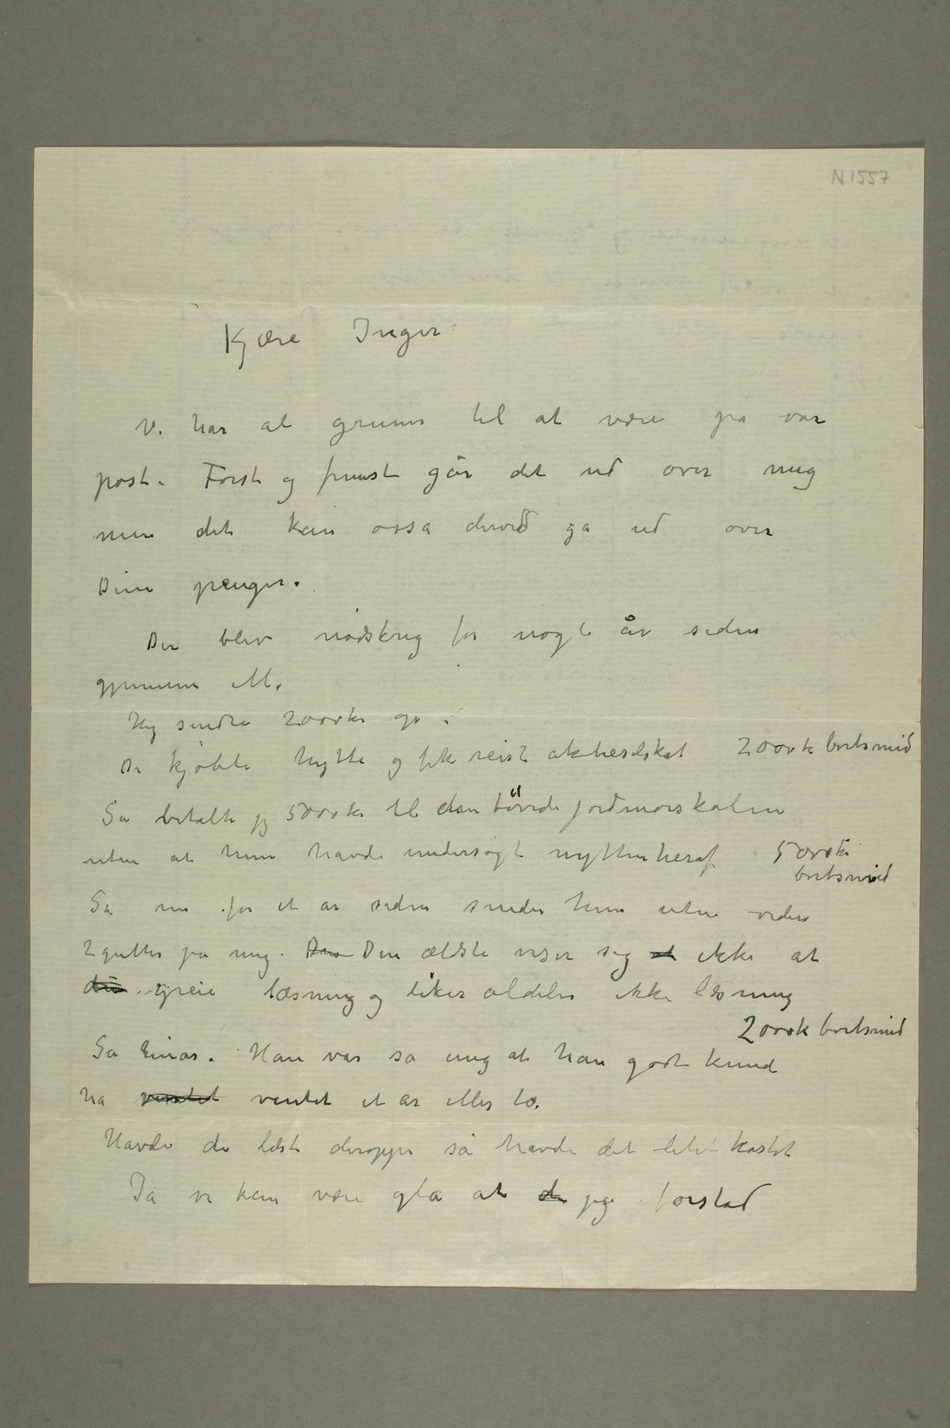 N 1557
Kjære Inger
Vi har al grunn til at være på vor
post. Først og fremst går det ud over mig
men det kan osså derved gå ud over
Dine penger.
Der blev nødskrig for nogle år siden
gjennem M.
Jeg sendte 2000 kr op.
De kjøbte hytte og fik reist aktieselskab 2000 k bortsmid
Så betalte jeg 5000 kr til den tørrede jordmorskolen
uten at hun havde undersøgt nytten heraf 5000 kr
bortsmid
Så nu for et år siden sender hun uten viden
2 gutter på mig. Den Den ældste viser sig at ikke at
den greie læsning og liker aldeles ikke læsning
2000 k bortsmid
Så Einar. Han var så ung at han godt kunde
ha ventet ventet et år eller to.
Havde de læst deroppe så havde det litet kostet
Ja vi kan være gla at de jeg forstod